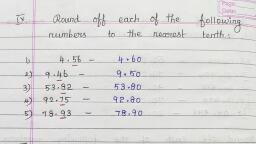 IV Round off each of the following
numbers to the nearest tenth:
1) 4.56 - 4.60
2) 9.46 - 9.50
3) 53.82 - 53.80
4) 92.75 - 92.80
5) 78.93 - 78.90